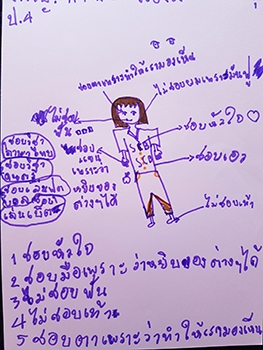 ป.4
ชอบตาเพราะว่าทำให้เรามองเห็น
ไม่ชอบผมเพราะมันฟู
ไม่ชอบ
ฟัน
ชอบหัวใจ
ชอบ
แขน
เพราะว่า
หยิบของ
ต่างๆได้
ชอบเอว
ไม่ชอบเท้า
ชอบวิชา
ชอบวิชา
1 ชอบหัวใจ
2 ชอบมือเพราะว่าหยิบของต่างๆได้
3 ไม่ชอบฟัน
4 ไม่ชอบเท้า
5 ชอบตาเพราะว่าทำให้เรามองเห็น